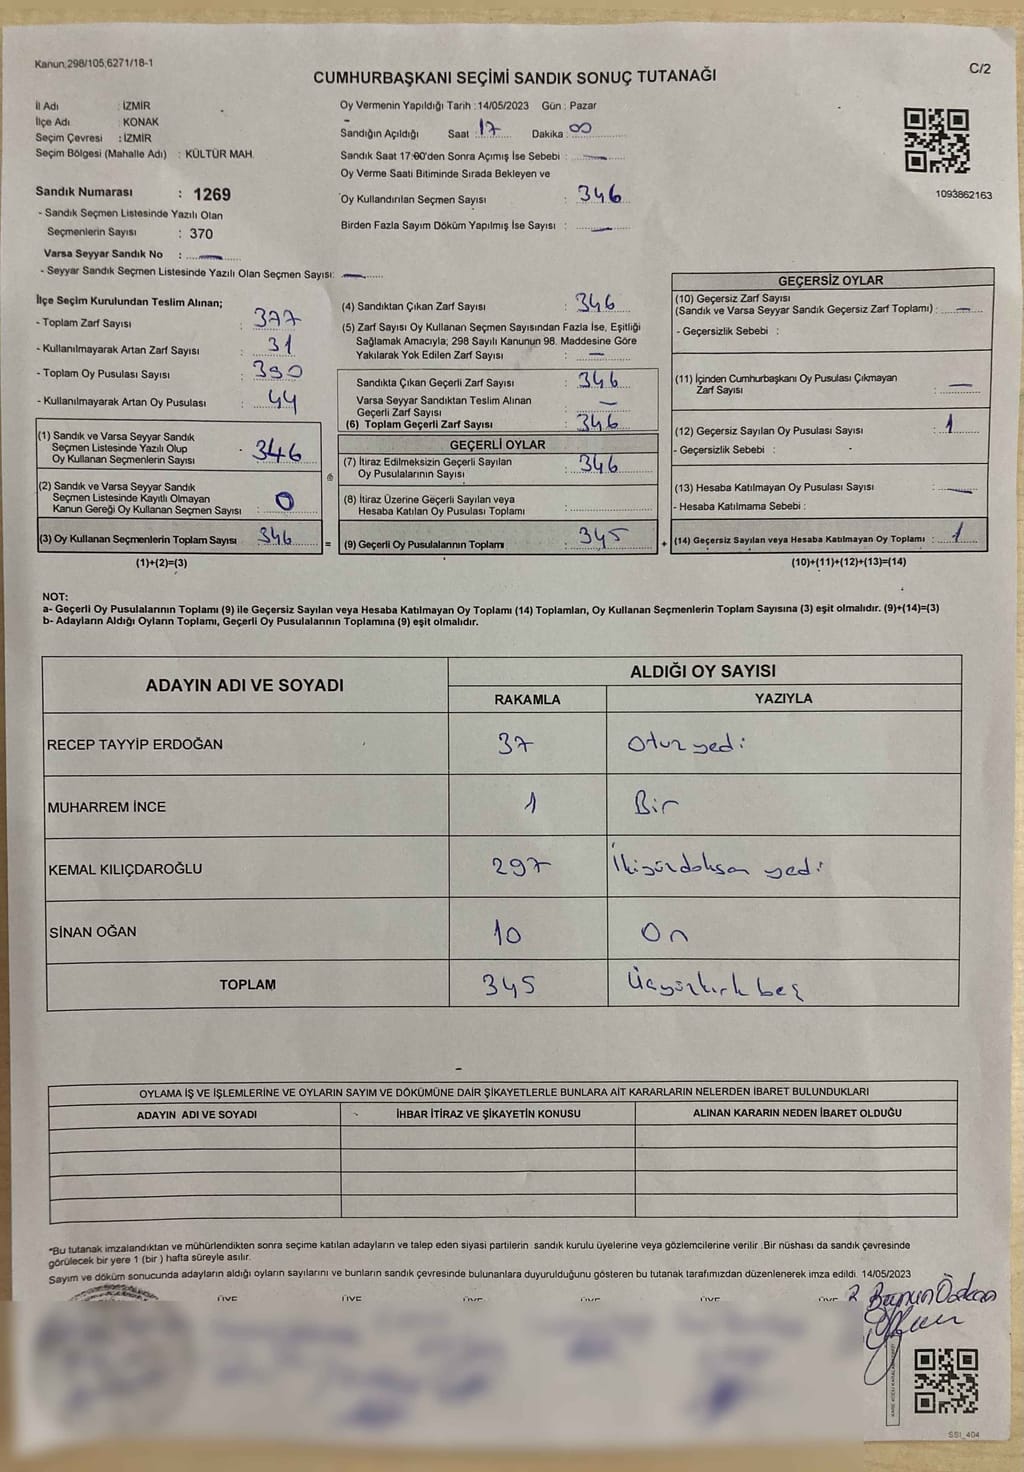 Kanun,298/105,6271/18-1
C/2
CUMHURBAŞKANI SEÇİMİ SANDIK SONUÇ TUTANAĞI
İl Adı : İZMİR
İlçe Adı : KONAK
Seçim Çevresi : İZMİR
Seçim Bölgesi (Mahalle Adı) : KÜLTÜR MAH.
Sandık Numarası : 1269
- Sandık Seçmen Listesinde Yazılı Olan
Seçmenlerin Sayısı : 370
Varsa Seyyar Sandık No :
- Seyyar Sandık Seçmen Listesinde Yazılı Olan Seçmen Sayısı:
Oy Vermenin Yapıldığı Tarih :14/05/2023 Gün : Pazar
Sandığın Açıldığı Saat : 17 Dakika : 00
Sandık Saat 17:00'den Sonra Açımış İse Sebebi :
Oy Verme Saati Bitiminde Sırada Bekleyen ve
Oy Kullandırılan Seçmen Sayısı : 346
Birden Fazla Sayım Döküm Yapılmış İse Sayısı :
1093862163
İlçe Seçim Kurulundan Teslim Alınan;
- Toplam Zarf Sayısı : 377
- Kullanılmayarak Artan Zarf Sayısı : 31
- Toplam Oy Pusulası Sayısı : 390
- Kullanılmayarak Artan Oy Pusulası : 44
(1) Sandık ve Varsa Seyyar Sandık
Seçmen Listesinde Yazılı Olup
Oy Kullanan Seçmenlerin Sayısı : 346
(2) Sandık ve Varsa Seyyar Sandık
Seçmen Listesinde Kayıtlı Olmayan
Kanun Gereği Oy Kullanan Seçmen Sayısı : 0
(3) Oy Kullanan Seçmenlerin Toplam Sayısı : 346
(1)+(2)=(3)
(4) Sandıktan Çıkan Zarf Sayısı : 346
(5) Zarf Sayısı Oy Kullanan Seçmen Sayısından Fazla İse, Eşitliği
Sağlamak Amacıyla; 298 Sayılı Kanunun 98. Maddesine Göre
Yakılarak Yok Edilen Zarf Sayısı :
Sandıkta Çıkan Geçerli Zarf Sayısı : 346
Varsa Seyyar Sandıktan Teslim Alınan
Geçerli Zarf Sayısı
(6) Toplam Geçerli Zarf Sayısı : 346
GEÇERLİ OYLAR
(7) İtiraz Edilmeksizin Geçerli Sayılan
Oy Pusulalarının Sayısı : 346
(8) İtiraz Üzerine Geçerli Sayılan veya
Hesaba Katılan Oy Pusulası Toplamı :
= (9) Geçerli Oy Pusulalarının Toplamı : 345
GEÇERSİZ OYLAR
(10) Geçersiz Zarf Sayısı
(Sandık ve Varsa Seyyar Sandık Geçersiz Zarf Toplamı) :
- Geçersizlik Sebebi :
(11) İçinden Cumhurbaşkanı Oy Pusulası Çıkmayan
Zarf Sayısı :
(12) Geçersiz Sayılan Oy Pusulası Sayısı : 1
- Geçersizlik Sebebi :
(13) Hesaba Katılmayan Oy Pusulası Sayısı :
- Hesaba Katılmama Sebebi :
+ (14) Geçersiz Sayılan veya Hesaba Katılmayan Oy Toplamı : 1
(10)+(11)+(12)+(13)=(14)
NOT:
a- Geçerli Oy Pusulalarının Toplamı (9) ile Geçersiz Sayılan veya Hesaba Katılmayan Oy Toplamı (14) Toplamları, Oy Kullanan Seçmenlerin Toplam Sayısına (3) eşit olmalıdır. (9)+(14)=(3)
b- Adayların Aldığı Oyların Toplamı, Geçerli Oy Pusulalarının Toplamına (9) eşit olmalıdır.
ADAYIN ADI VE SOYADI
ALDIĞI OY SAYISI
RAKAMLA YAZIYLA
RECEP TAYYİP ERDOĞAN 37 Otuz yedi
MUHARREM İNCE 1 Bir
KEMAL KILIÇDAROĞLU 297 İkiyüzdoksan yedi
SİNAN OĞAN 10 On
TOPLAM 345 Üçyüzkırk beş
OYLAMA İŞ VE İŞLEMLERİNE VE OYLARIN SAYIM VE DÖKÜMÜNE DAİR ŞİKAYETLERLE BUNLARA AİT KARARLARIN NELERDEN İBARET BULUNDUKLARI
ADAYIN ADI VE SOYADI İHBAR İTİRAZ VE ŞİKAYETİN KONUSU ALINAN KARARIN NEDEN İBARET OLDUĞU
*Bu tutanak imzalandıktan ve mühürlendikten sonra seçime katılan adayların ve talep eden siyasi partilerin sandık kurulu üyelerine veya gözlemcilerine verilir .Bir nüshası da sandık çevresinde
görülecek bir yere 1 (bir ) hafta süreyle asılır.
Sayım ve döküm sonucunda adayların aldığı oyların sayılarını ve bunların sandık çevresinde bulunanlara duyurulduğunu gösteren bu tutanak tarafımızdan düzenlenerek imza edildi. 14/05/2023
ÜYE ÜYE ÜYE ÜYE ÜYE ÜYE
SSI_404